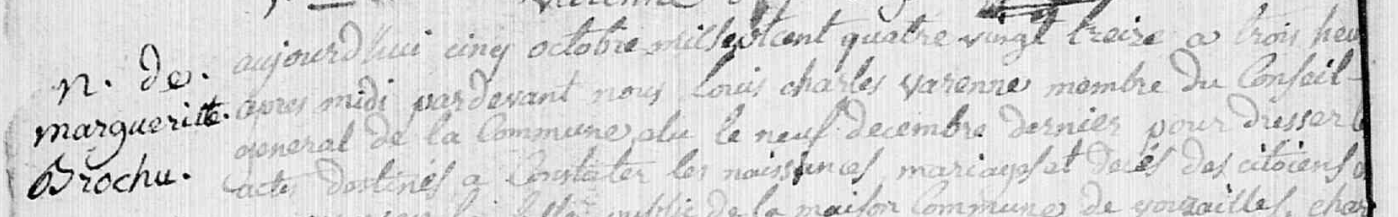 varenne
n. de.
margueritte.
Brochu.
aujourd'hui cinq octobre mil sept cent quatre vingt treize a trois heu
apres midi pardevant nous Louis charles varenne membre du Conseil
general de la Commune elu le neuf decembre dernier pour dresser l
acts destinés a Constater les naissances mariages et decés des citoiens
public de la maison Commune de vouzailles, char